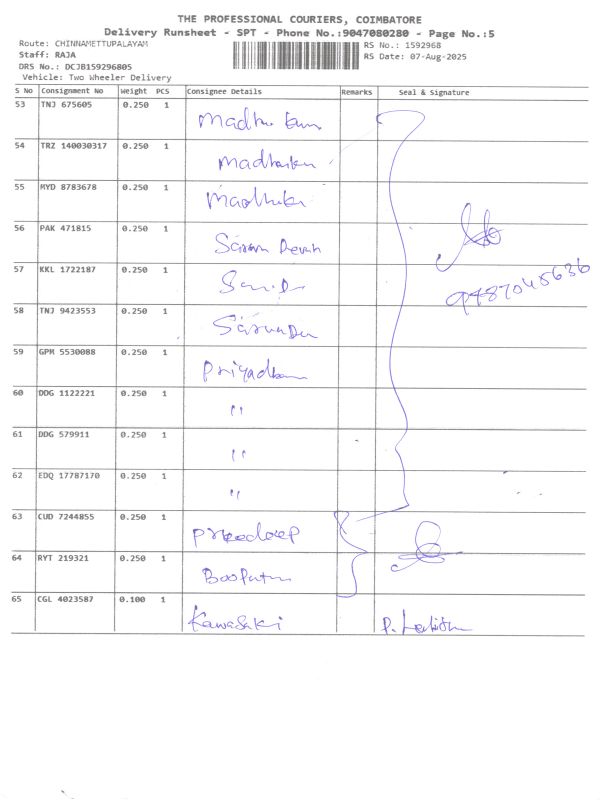 THE PROFESSIONAL COURIERS, COIMBATORE
Delivery Runsheet - SPT - Phone No.:9047080280 - Page No.:5
Route: CHINNAMETTUPALAYAM RS No.: 1592968
Staff: RAJA RS Date: 07-Aug-2025
DRS No.: DCJB159296805
Vehicle: Two Wheeler Delivery
S No Consignment No Weight PCS Consignee Details Remarks Seal & Signature
53 TNJ 675605 0.250 1 Madhu
54 TRZ 140030317 0.250 1
55 MYD 8783678 0.250 1
56 PAK 471815 0.250 1
57 KKL 1722187 0.250 1
58 TNJ 9423553 0.250 1
59 GPM 5530088 0.250 1
60 DDG 1122221 0.250 1 "
61 DDG 579911 0.250 1 "
62 EDQ 17787170 0.250 1 "
63 CUD 7244855 0.250 1
64 RYT 219321 0.250 1
65 CGL 4023587 0.100 1 Kawasaki